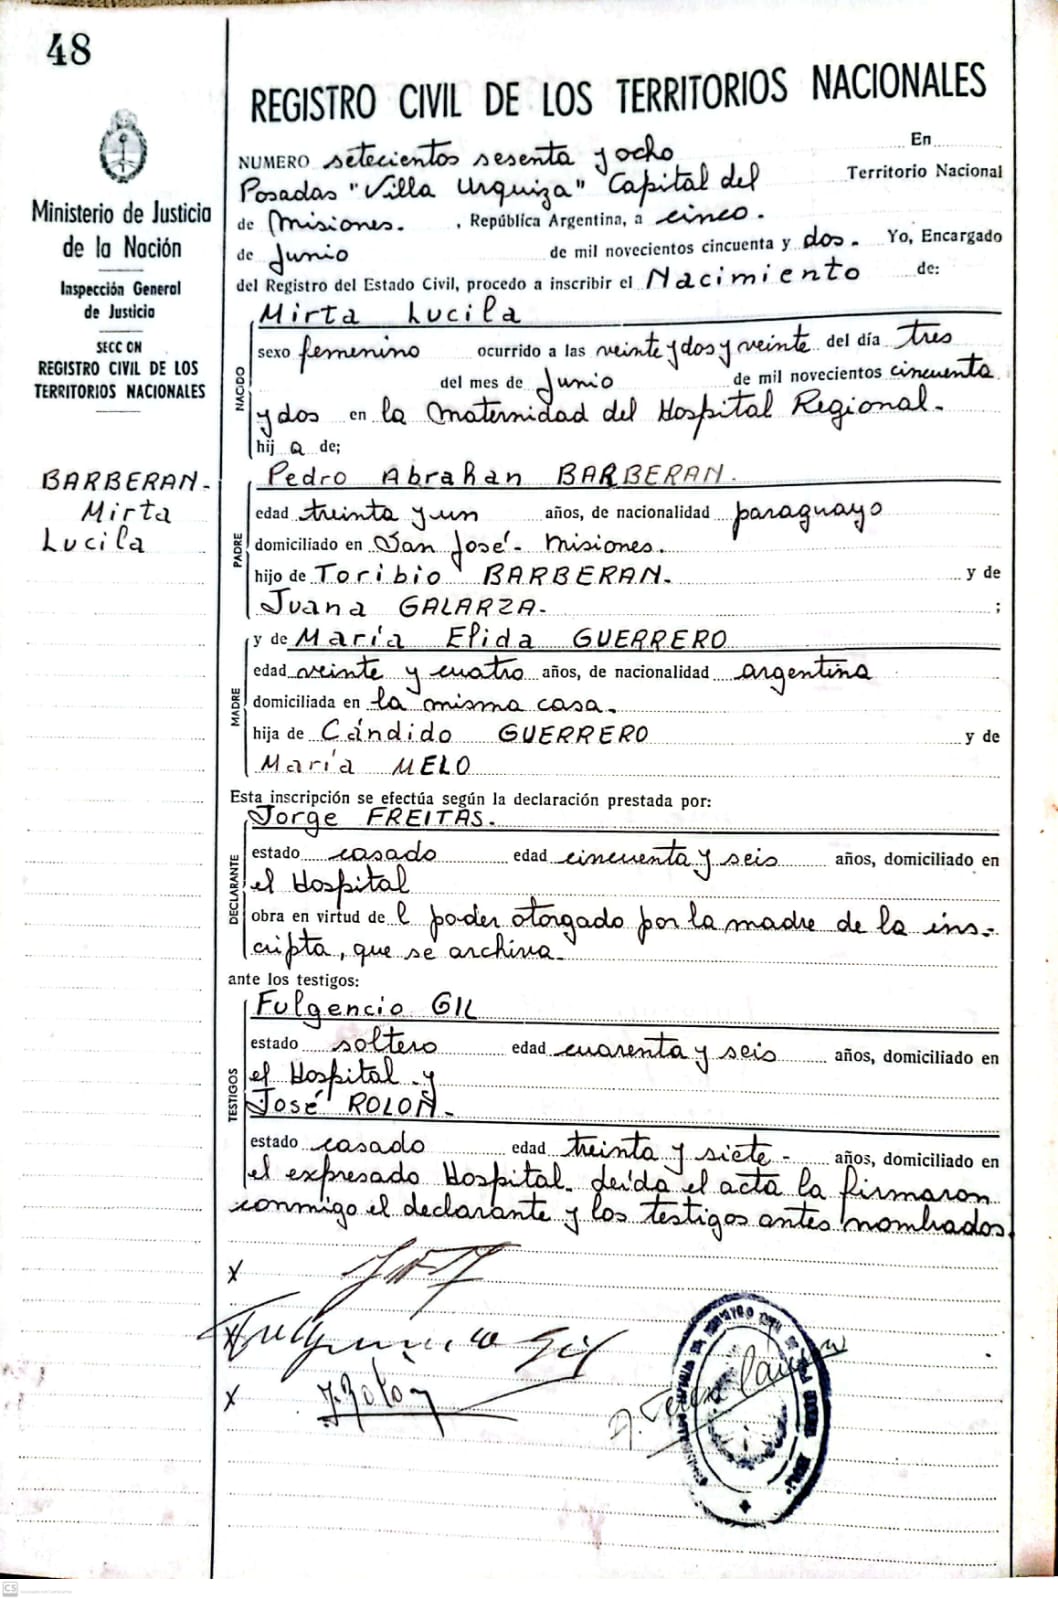 48
Ministerio de Justicia
de la Nación
Inspección General
de Justicia
SECCION
REGISTRO CIVIL DE LOS
TERRITORIOS NACIONALES
BARBERAN-
Mirta
Lucila
REGISTRO CIVIL DE LOS TERRITORIOS NACIONALES
NUMERO setecientos sesenta y ocho En
Posadas "Villa Urquiza" Capital del Territorio Nacional
de Misiones. , República Argentina, a cinco.
de Junio de mil novecientos cincuenta y dos. Yo, Encargado
del Registro del Estado Civil, procedo a inscribir el Nacimiento de:
NACIDO
Mirta Lucila
sexo femenino ocurrido a las veinte y dos y veinte del día tres
del mes de Junio de mil novecientos cincuenta
y dos en la Maternidad del Hospital Regional.
hij a de;
PADRE
Pedro Abrahan BARBERAN.
edad treinta y un años, de nacionalidad paraguayo
domiciliado en San José- Misiones.
hijo de Toribio BARBERAN. y de
Juana GALARZA- ;
MADRE
y de María Elida GUERRERO
edad veinte y cuatro años, de nacionalidad argentina
domiciliada en la misma casa.
hija de Cándido GUERRERO y de
María MELO
Esta inscripción se efectúa según la declaración prestada por:
DECLARANTE
Jorge FREITAS.
estado casado edad cincuenta y seis años, domiciliado en
el Hospital
obra en virtud de l poder otorgado por la madre de la ins-
cripta, que se archiva.
ante los testigos:
TESTIGOS
Fulgencio GIL
estado soltero edad cuarenta y seis años, domiciliado en
el Hospital y
José ROLON-
estado casado edad treinta y siete - años, domiciliado en
el expresado Hospital. Leída el acta la firmaron
conmigo el declarante y los testigos antes nombrados.
x
x Fulgencio Gil
x J. Rolon
CS